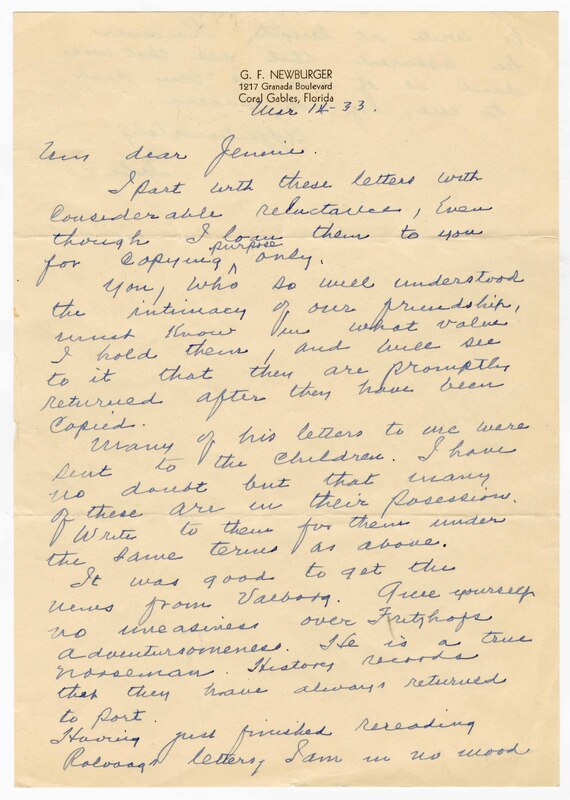 G. F. NEWBURGER
1217 Granada Boulevard
Coral Gables, Florida
Mar 12-33.
dear Jennie.
I part with these letters with
considerable reluctance, Even
though I loan them to you
for copying purpose only.
You, who so well understood
the intimacy of our friendship,
must know in what value
I hold them, and will see
to it that they are promptly
returned after they have been
copied.
Many of his letters to me were
sent to the children. I have
no doubt but that many
of these are in their posession.
Write to them for them under
the same terms as above.
It was good to get the
news from Valborg. Give yourself
no uneasiness over Fritzhofs
adventursomeness. He is a true
Norseman. History records
that they have always returned
to port.
Having just finished rereading
Rolvaags letters, I am in no mood